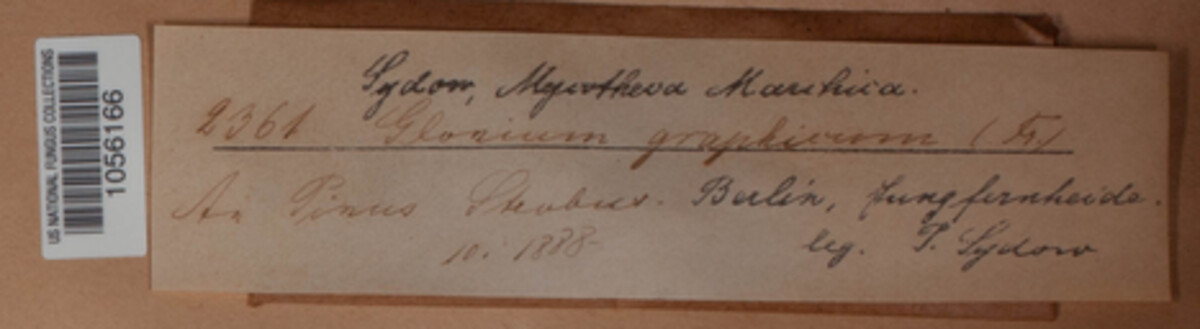 US NATIONAL FUNGUS COLLECTIONS
1056166
Sydow, Mycotheca Marchica.
2361 Glonium graphicum (Fr.)
An Pinus Strobus. Berlin, Jungfernheide.
10. 1888 leg. P. Sydow